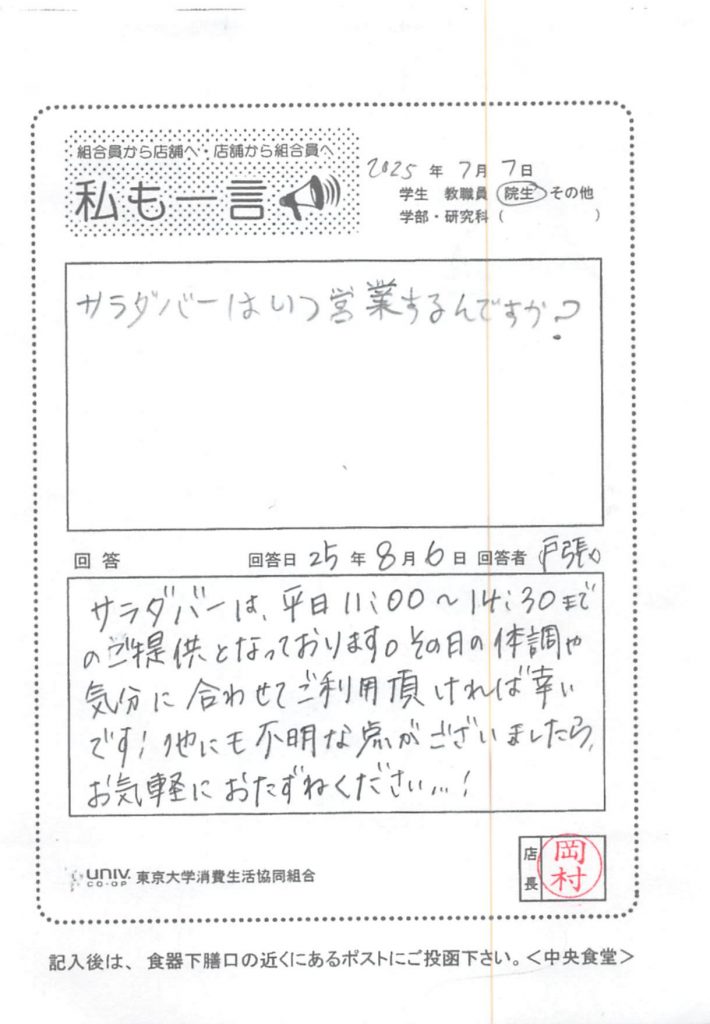 組合員から店舗へ・店舗から組合員へ
私も一言
2025 年 7月 7日
学生 教職員 院生 その他
学部・研究科 ( )
サラダバーはいつ営業するんですか?
回答 回答日 25 年 8 月 6 日 回答者 戸張
サラダバーは、平日11:00～14:30まで
のご提供となっております。その日の体調や
気分に合わせてご利用頂ければ幸い
です!他にも不明な点がございましたら、
お気軽におたずねください...!
UNIV. CO-OP 東京大学消費生活協同組合
店長 岡村
記入後は、食器下膳口の近くにあるポストにご投函下さい。＜中央食堂＞